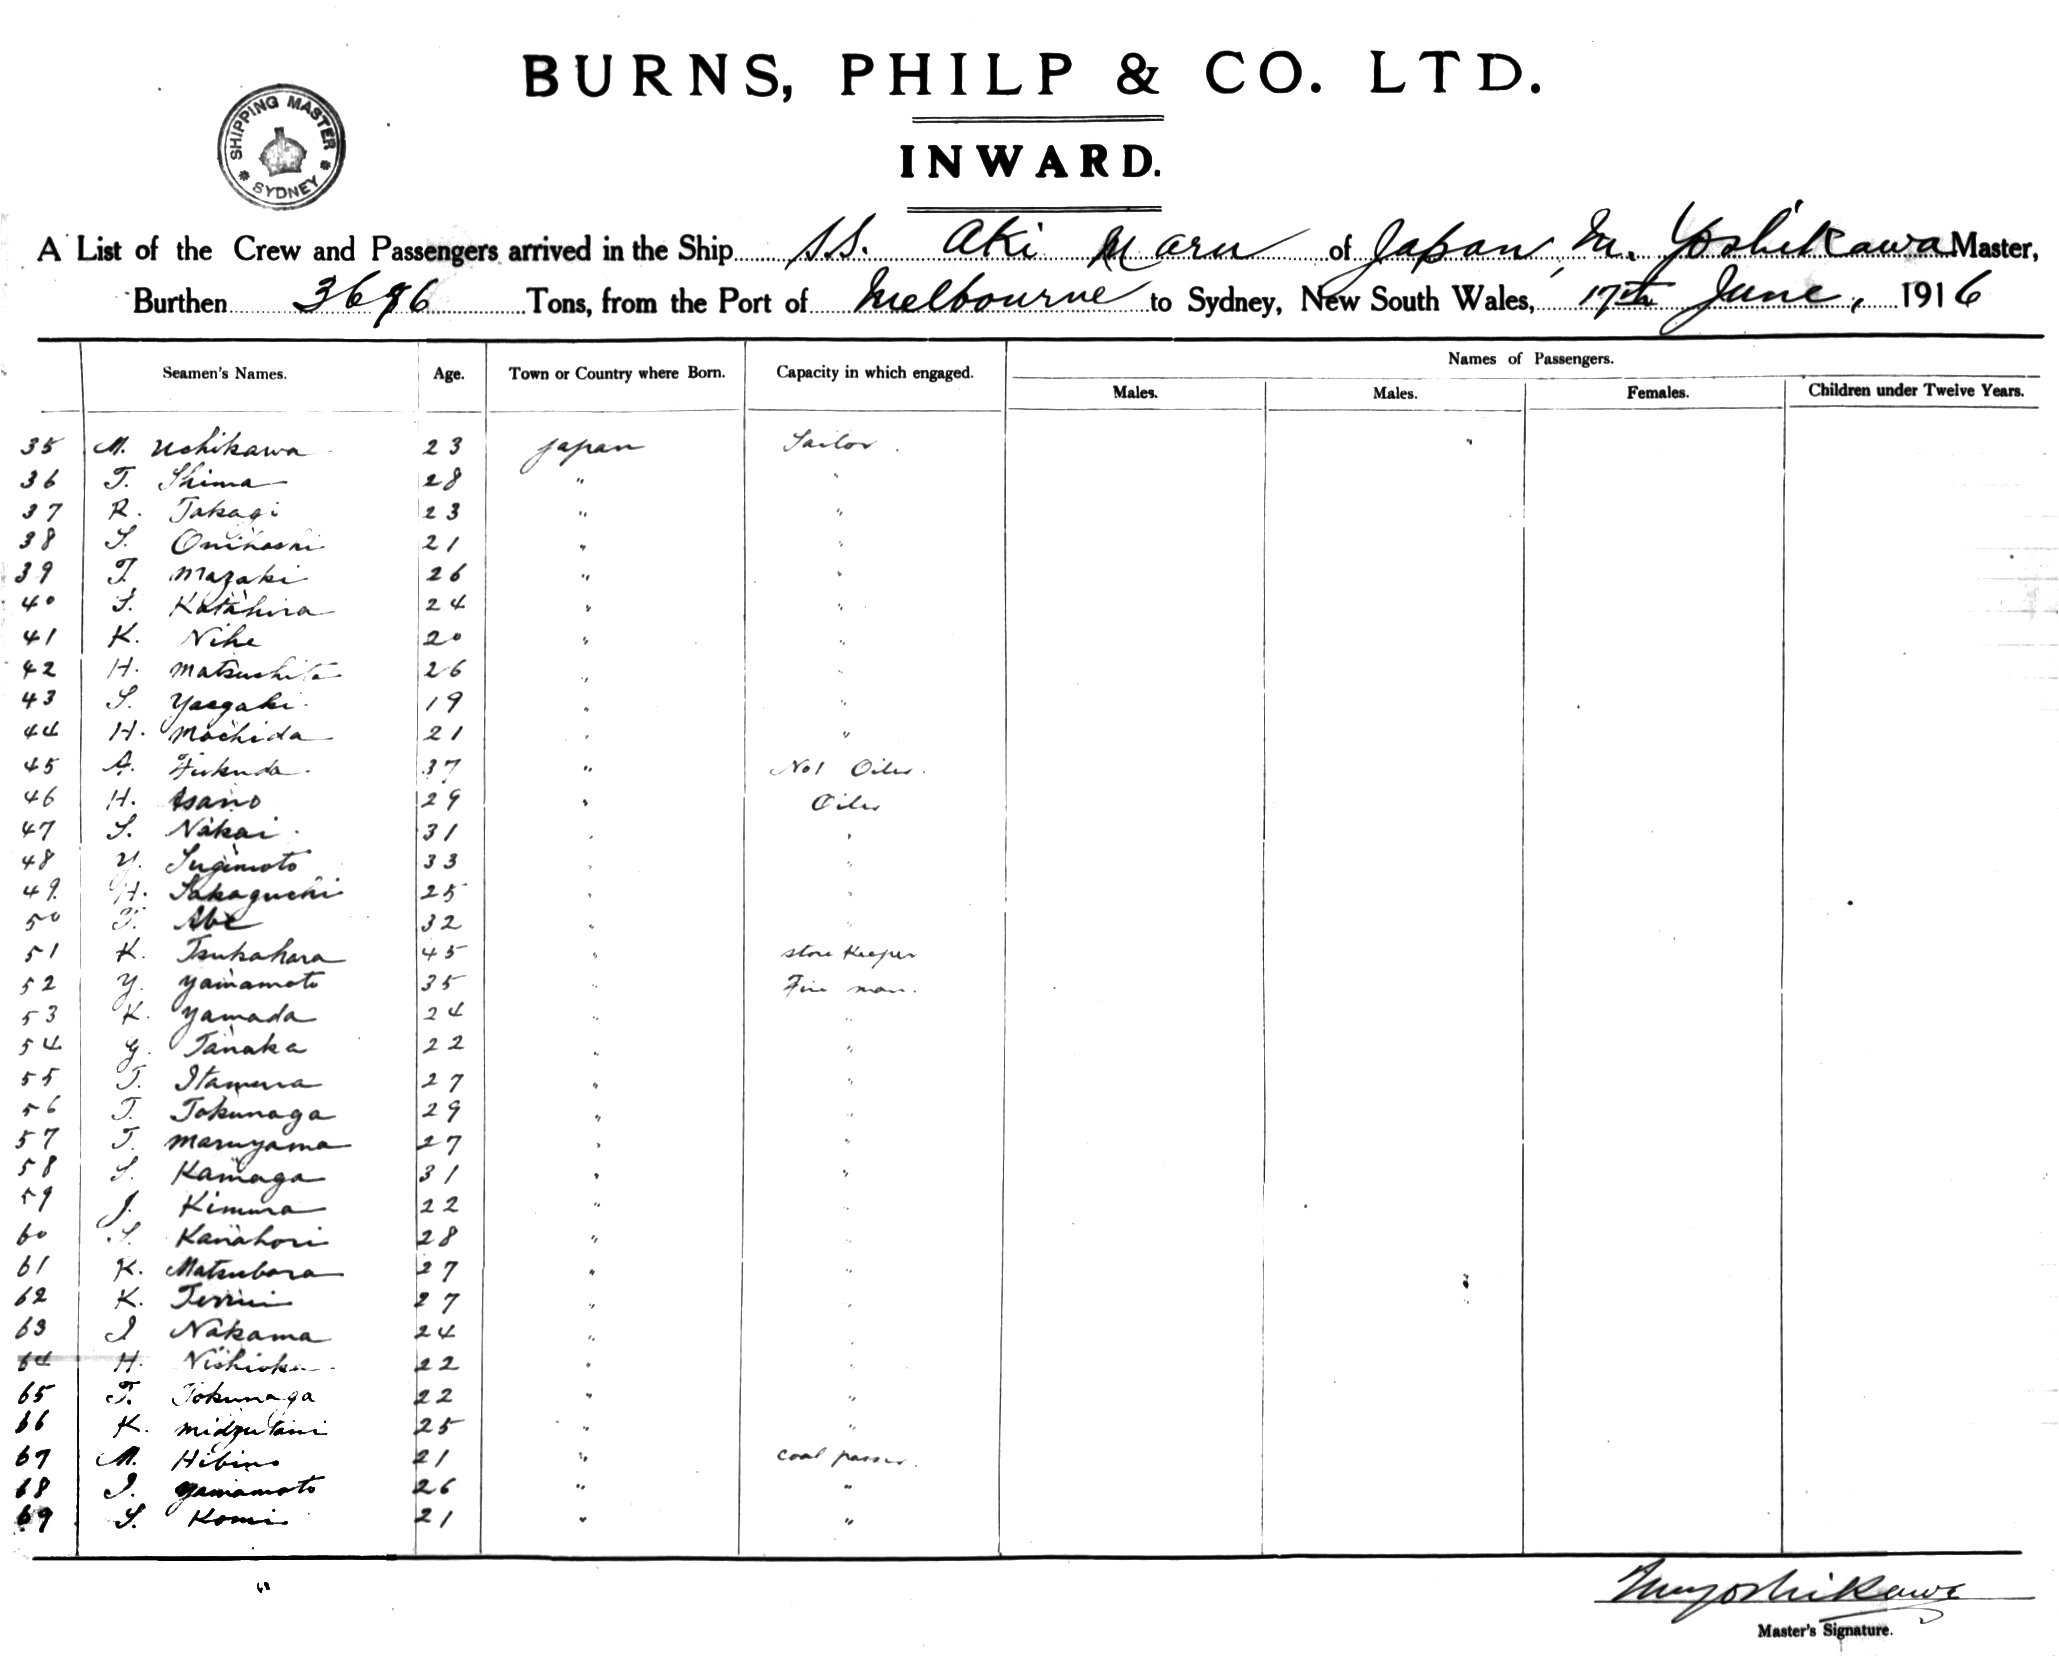 BURNS, PHILP & CO. LTD.
INWARD.
SHIPPING MASTER
SYDNEY
A List of the Crew and Passengers arrived in the Ship S.S. Aki Maru of Japan, M. Yoshikawa Master,
Burthen Tons, from the Port of Melbourne to Sydney, New South Wales, 17th June, 1916
Names of Passengers.
Seamen's Names. Age. Town or Country where Born. Capacity in which engaged. Males. Males. Females. Children under Twelve Years.
35 M. Uchikawa 23 Japan Sailor
36 T. Shima 28 " "
37 R. Takagi 23 " "
38 S. 21 " "
39 T. Mazaki 26 " "
40 S. Katahira 24 " "
41 K. Nihe 20 " "
42 H. Matsushita 26 " "
43 S. 19 " "
44 H. Mochida 21 " "
45 A. Fukuda 37 " No 1 Oiler
46 H. Asano 29 " Oiler
47 S. Nakai 31 " "
48 Y. Sugimoto 33 " "
49 H. Sakaguchi 25 " "
50 T. Abe 32 " "
51 K. Tsukahara 45 " store Keeper
52 Y. Yamamoto 35 " Fire man.
53 K. Yamada 24 " "
54 G. Tanaka 22 " "
55 T. Itamura 27 " "
56 T. Tokunaga 29 " "
57 T. Maruyama 27 " "
58 S. Kamaga 31 " "
59 J. Kimura 22 " "
60 S. Kanahori 28 " "
61 K. Matsubara 27 " "
62 K. 27 " "
63 I Nakama 24 " "
64 H. Nishioka 22 " "
65 T. Tokunaga 22 " "
66 K. Midzutani 25 " "
67 M. Hibino 21 " coal passer.
68 I. Yamamoto 26 " "
69 S. Komi 21 " "
M Yoshikawa
Master's Signature.